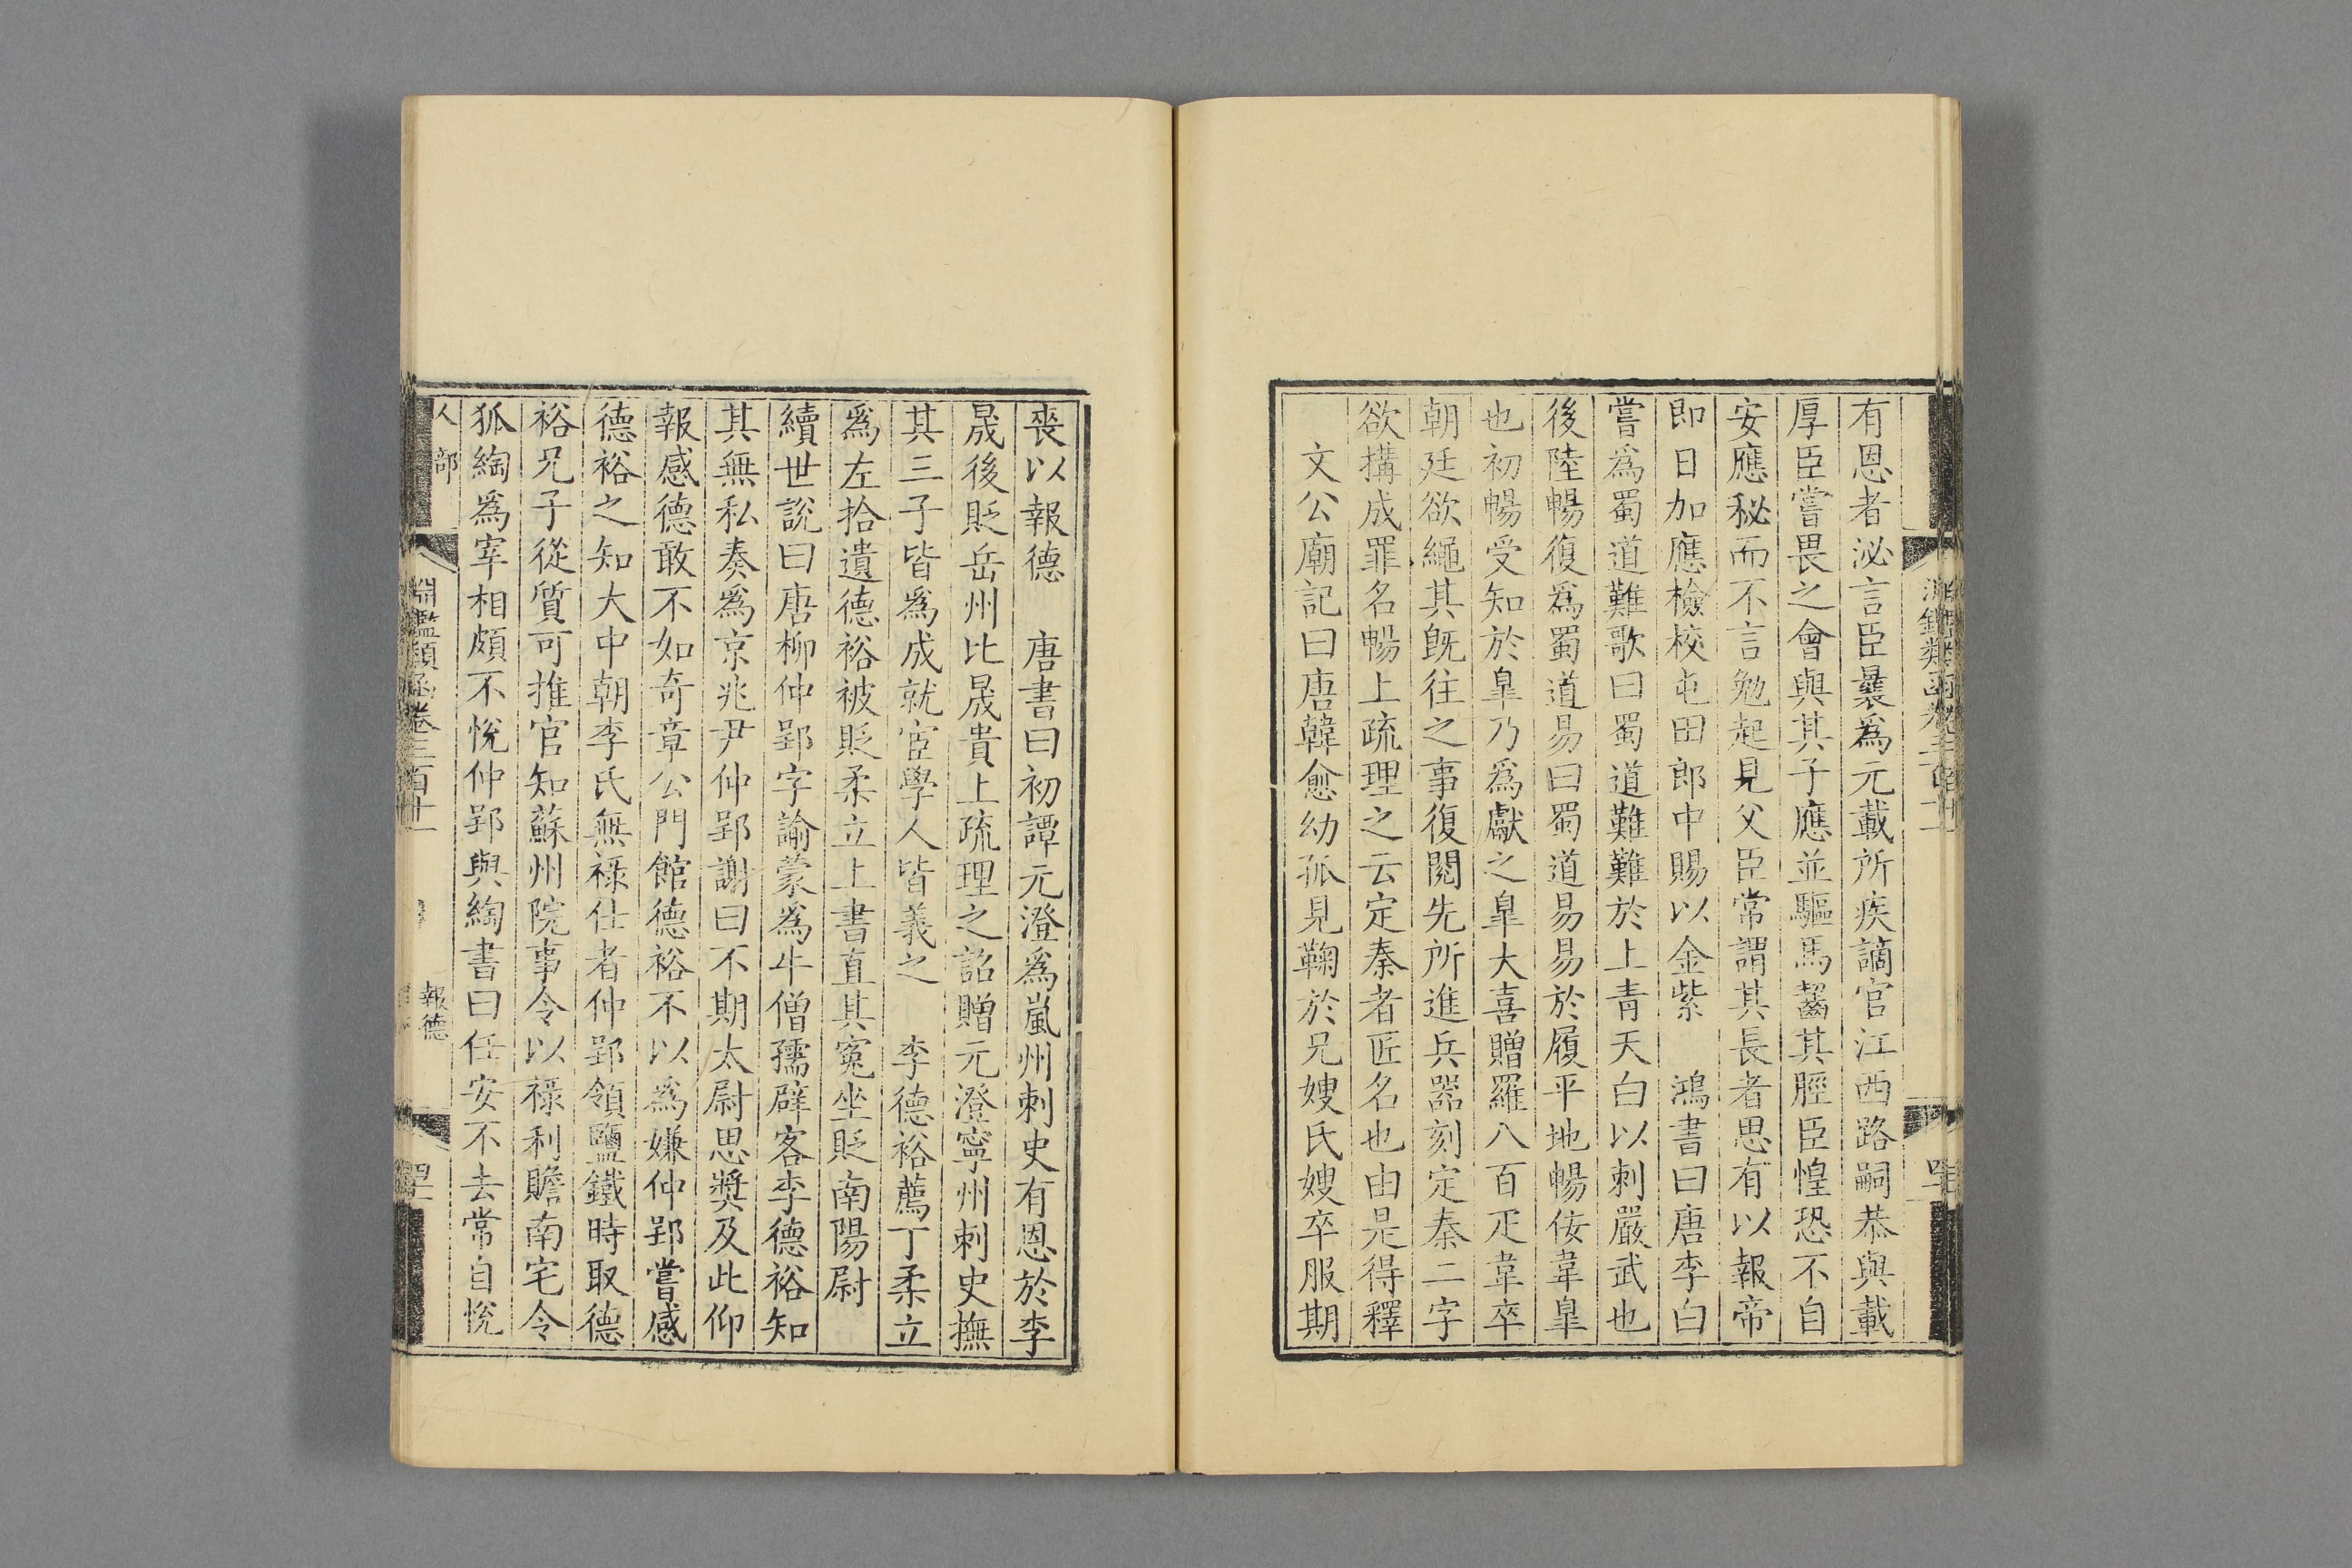 有恩者泌言臣曩爲元載所疾謫官江西路嗣恭與載
厚臣嘗畏之會與其子應並驅馬齧其脛臣惶恐不自
安應秘而不言勉起見父臣常謂其長者思有以報帝
即日加應檢校屯田郎中賜以金紫　鴻書曰唐李白
嘗爲蜀道難歌曰蜀道難難於上青天白以刺嚴武也
後陸暢復爲蜀道易曰蜀道易易於履平地暢佞韋臯
也初暢受知於臯乃爲獻之臯大喜贈羅八百疋韋卒
朝廷欲繩其旣往之事復閱先所進兵器刻定秦二字
欲搆成罪名暢上疏理之云定秦者匠名也由是得釋
文公廟記曰唐韓愈幼孤見鞠於兄嫂氏嫂卒服期
喪以報德　唐書曰初譚元澄爲嵐州刺史有恩於李
晟後貶岳州比晟貴上疏理之詔贈元澄寧州刺史撫
其三子皆爲成就宦學人皆義之　李德裕薦丁柔立
爲左拾遺德裕被貶柔立上書直其寃坐貶南陽尉
續世說曰唐柳仲郢字諭蒙爲牛僧孺辟客李德裕知
其無私奏爲京兆尹仲郢謝曰不期太尉思獎及此仰
報感德敢不如奇章公門館德裕不以爲嫌仲郢嘗感
德裕之知大中朝李氏無祿仕者仲郢領鹽鐵時取德
裕兄子從質可推官知蘇州院事令以祿利贍南宅令
狐綯爲宰相頗不悅仲郢與綯書曰任安不去常自愧
人部
淵鑑類函卷三百十一
報德